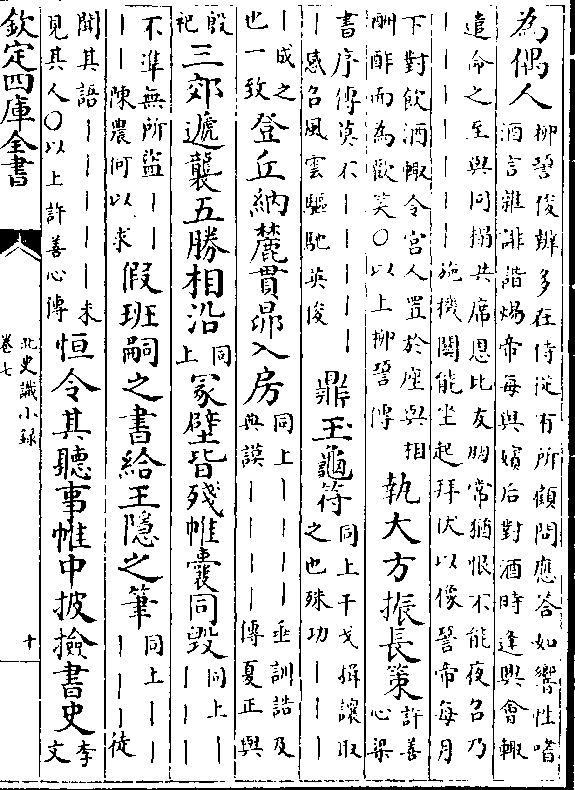 為偶人
柳䛒俊辯多在侍從有所顧問應答如響性嗜
酒言雜誹諧煬帝每與嬪后對酒時逢興會輒
遣命之至與同榻共席恩比友朋常猶恨不能夜召乃
｜｜｜｜｜施機關能坐起拜伏以像䛒帝每月
下對飲酒輒令宮人置於座與相
酬酢而為歡笑○以上柳䛒傳
執大方振長策
許善
心梁
書序傳莫不｜｜｜｜｜
｜感召風雲驅馳英俊
鼎玉龜符
同上干戈揖讓取
之也殊功｜｜｜
｜成之
也一致
登丘納麓貫昴入房
同上｜｜｜｜垂訓誥及
典謨｜｜｜｜傳夏正與
殷
祀
三郊遞襲五勝相沿
同
上
冢壁皆殘帷囊同毀
同上｜
｜｜｜
不準無所盜｜｜
｜｜陳農何以求
假班嗣之書給王隱之筆
同上｜｜
｜｜｜徒
聞其語｜｜｜｜｜未
見其人○以上許善心傳
恒令其聽事帷中披撿書史
李
文
欽定四庫全書
北史識小録
卷七
十